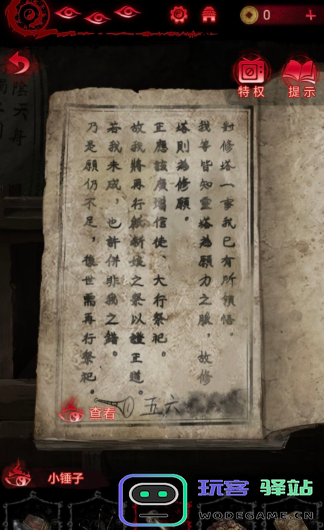 0
特权
提示
對修塔一事我已有所領悟。
我等皆知靈塔為願力之脈，故修
塔則為修願。
正應該廣增信使、大行祭祀。
故我將再行紙新娘之祭以證王道。
若我未成，也許併非我之錯。
乃是願仍不足，後世需再行祭祀。
五六
查看
小锤子
玩客 驿站
WODEGAME.CN